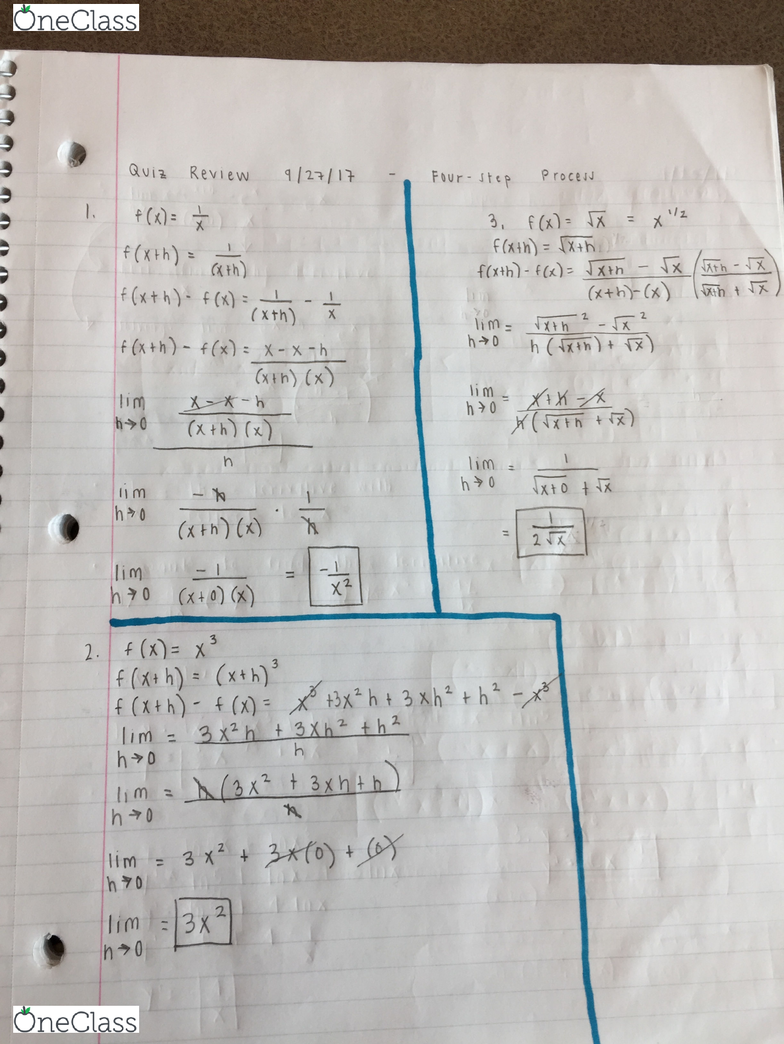 OneClass
Quiz Review 9/27/17 - Four-step Process
1. f(x) = 1/x
f(x+h) = 1/(x+h)
f(x+h) - f(x) = 1/(x+h) - 1/x
f(x+h) - f(x) = (x-x-h)/((x+h)(x))
lim h→0 ((x-x-h)/((x+h)(x)))/h
lim h→0 -h/((x+h)(x)) · 1/h
lim h→0 -1/((x+0)(x)) = -1/x²
3. f(x) = √x = x^1/2
f(x+h) = √x+h
f(x+h) - f(x) = (√x+h - √x)/((x+h)-(x)) ((√x+h - √x)/(√x+h + √x))
lim h→0 = (√x+h² - √x²)/(h(√x+h) + √x))
lim h→0 = (x+h-x)/(h(√x+h + √x))
lim h→0 = 1/(√x+0 + √x)
= 1/(2√x)
2. f(x) = x³
f(x+h) = (x+h)³
f(x+h) - f(x) = x³ +3x²h + 3xh² + h² - x³
lim h→0 = (3x²h + 3xh² + h²)/h
lim h→0 = h(3x² + 3xh + h)/h
lim h→0 = 3x² + 3x(0) + (0)
lim h→0 = 3x²
OneClass